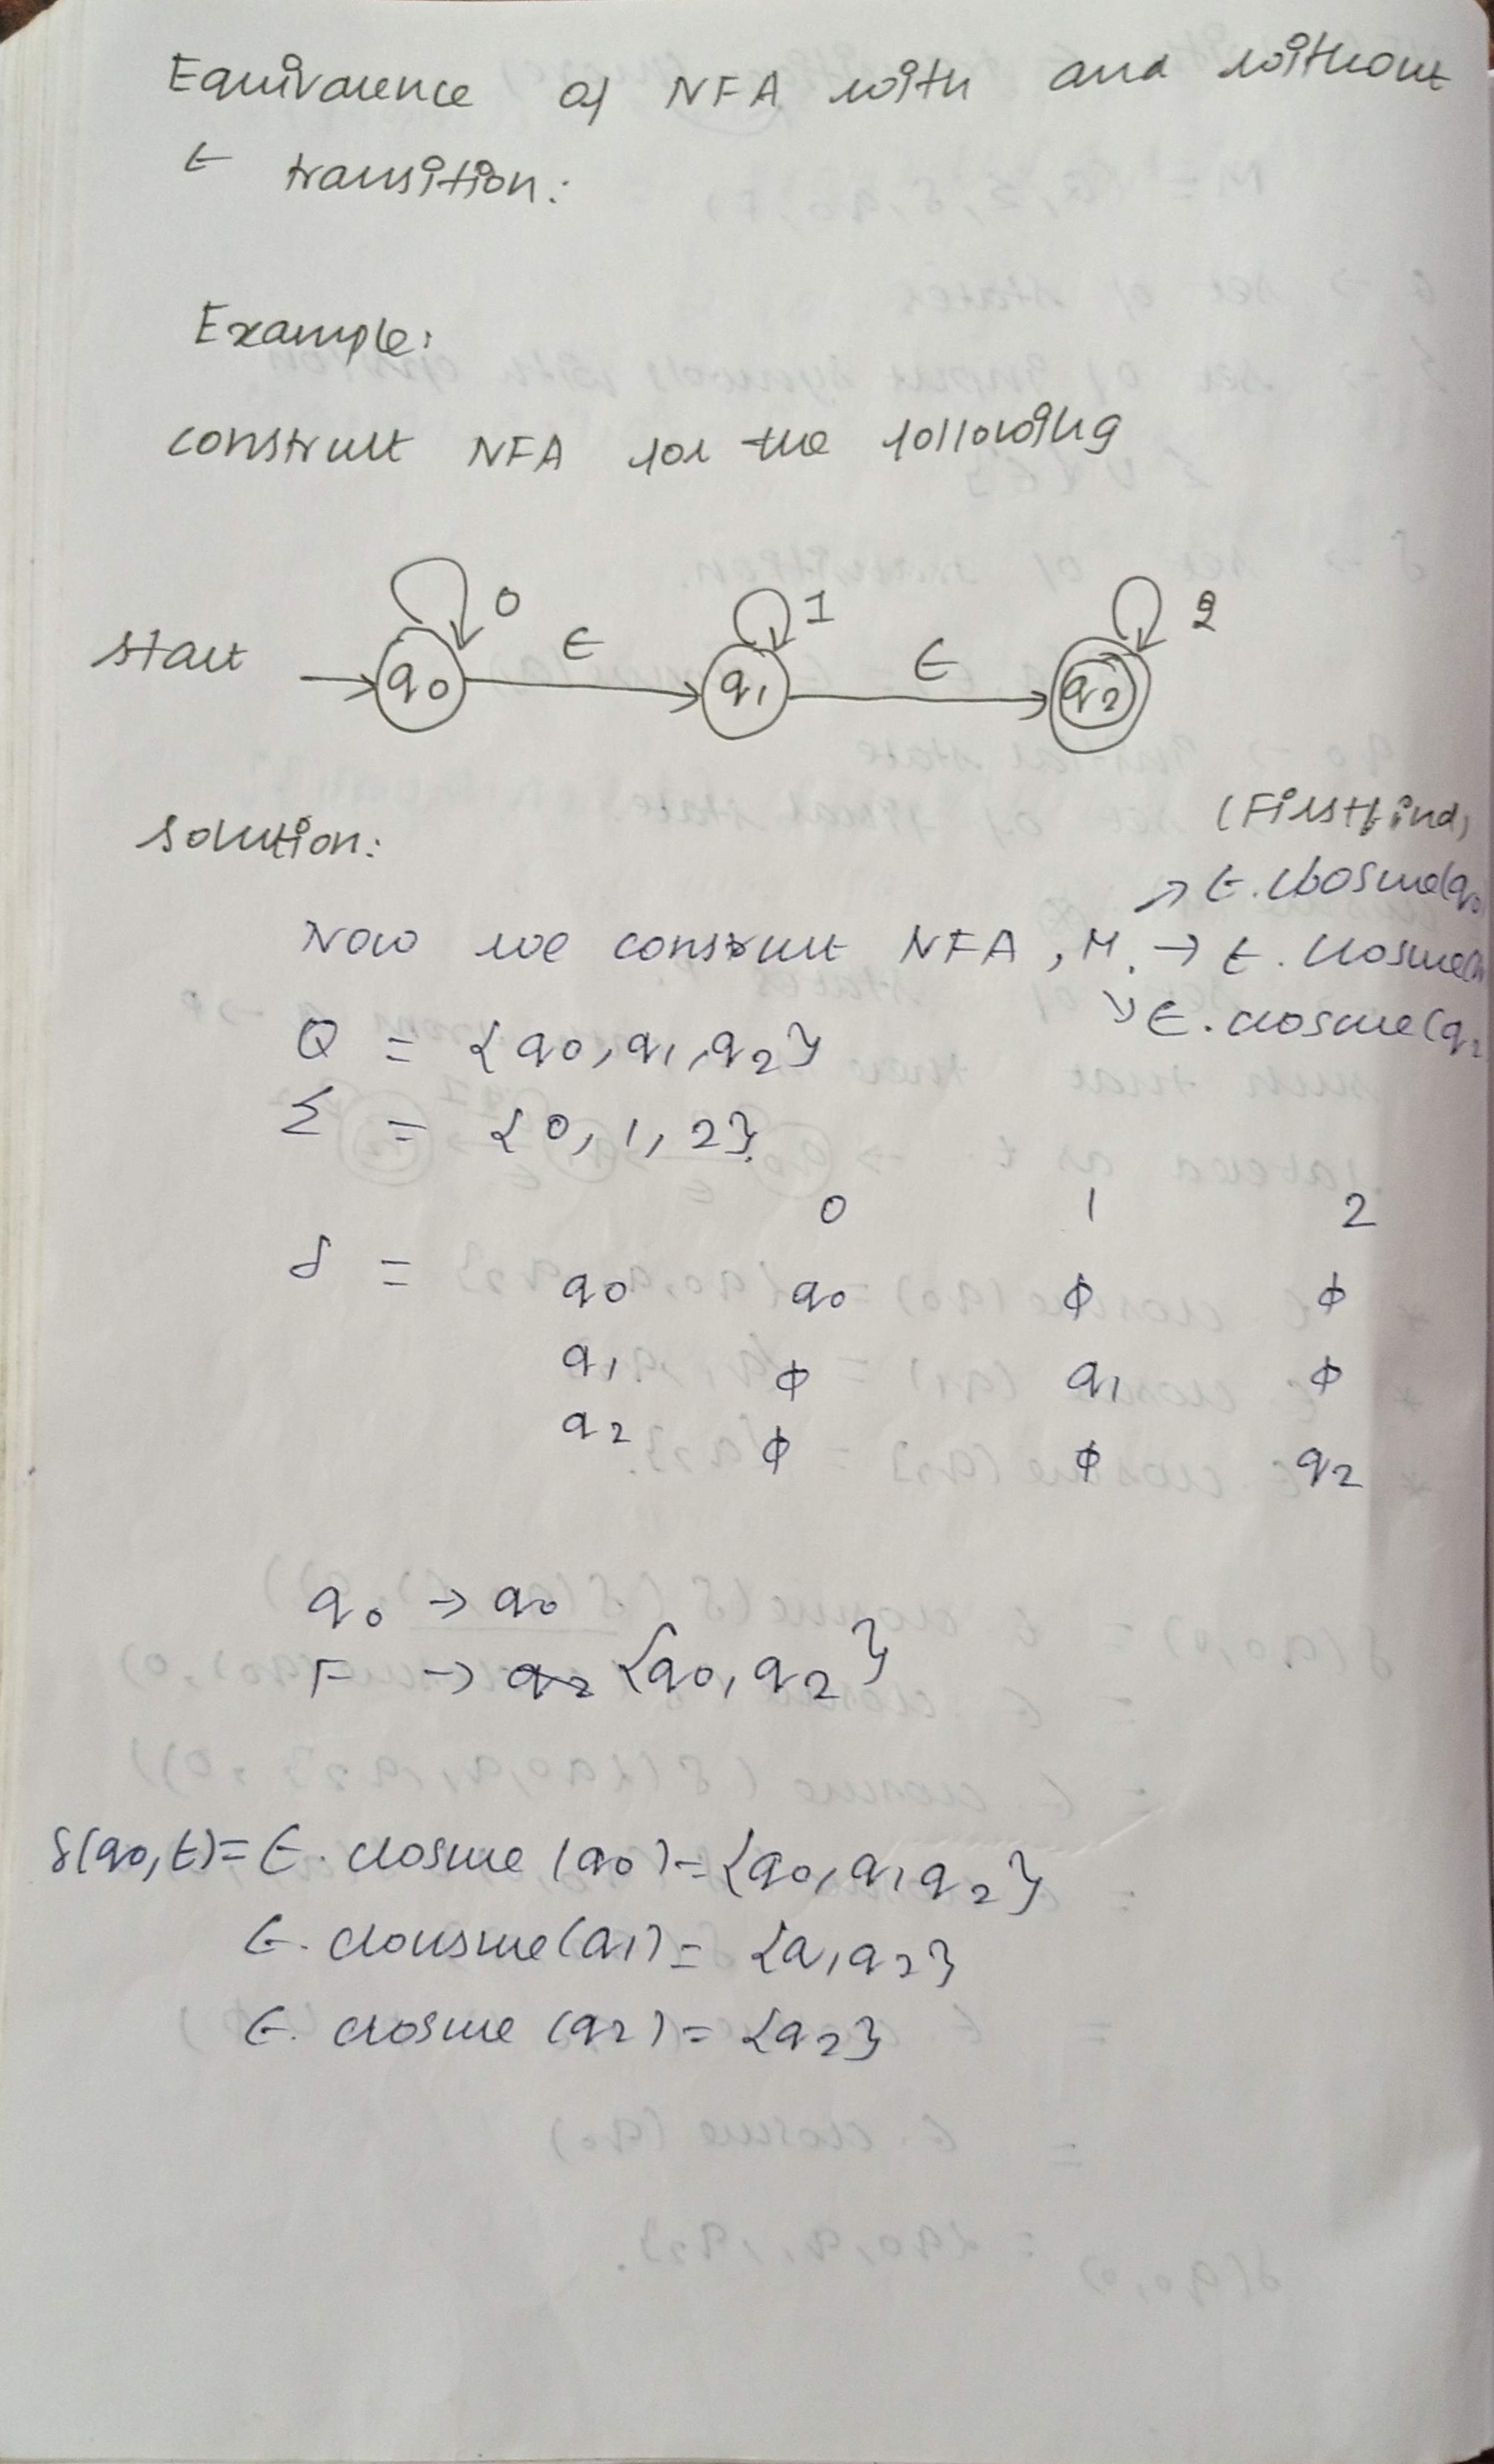 Equivalence of NFA with and without
ϵ transition:
Example:
construct NFA for the following
start q0 0 ϵ q1 1 ϵ q2 2
solution:
(First find)
→ ϵ. closure(q0
Now we construct NFA, M. → ϵ. closure(
↘ ϵ. closure(q2
Q = {q0, q1, q2}
Σ = {0, 1, 2}.
0 1 2
δ =
q0 q0 ϕ ϕ
q1 ϕ q1 ϕ
q2 ϕ ϕ q2
q0 → q0
F → {q0, q2}
δ(q0, ϵ) = ϵ. closure (q0) = {q0, q1 q2}
ϵ. clousure(q1) = {q1 q2}
ϵ. closure (q2) = {q2}